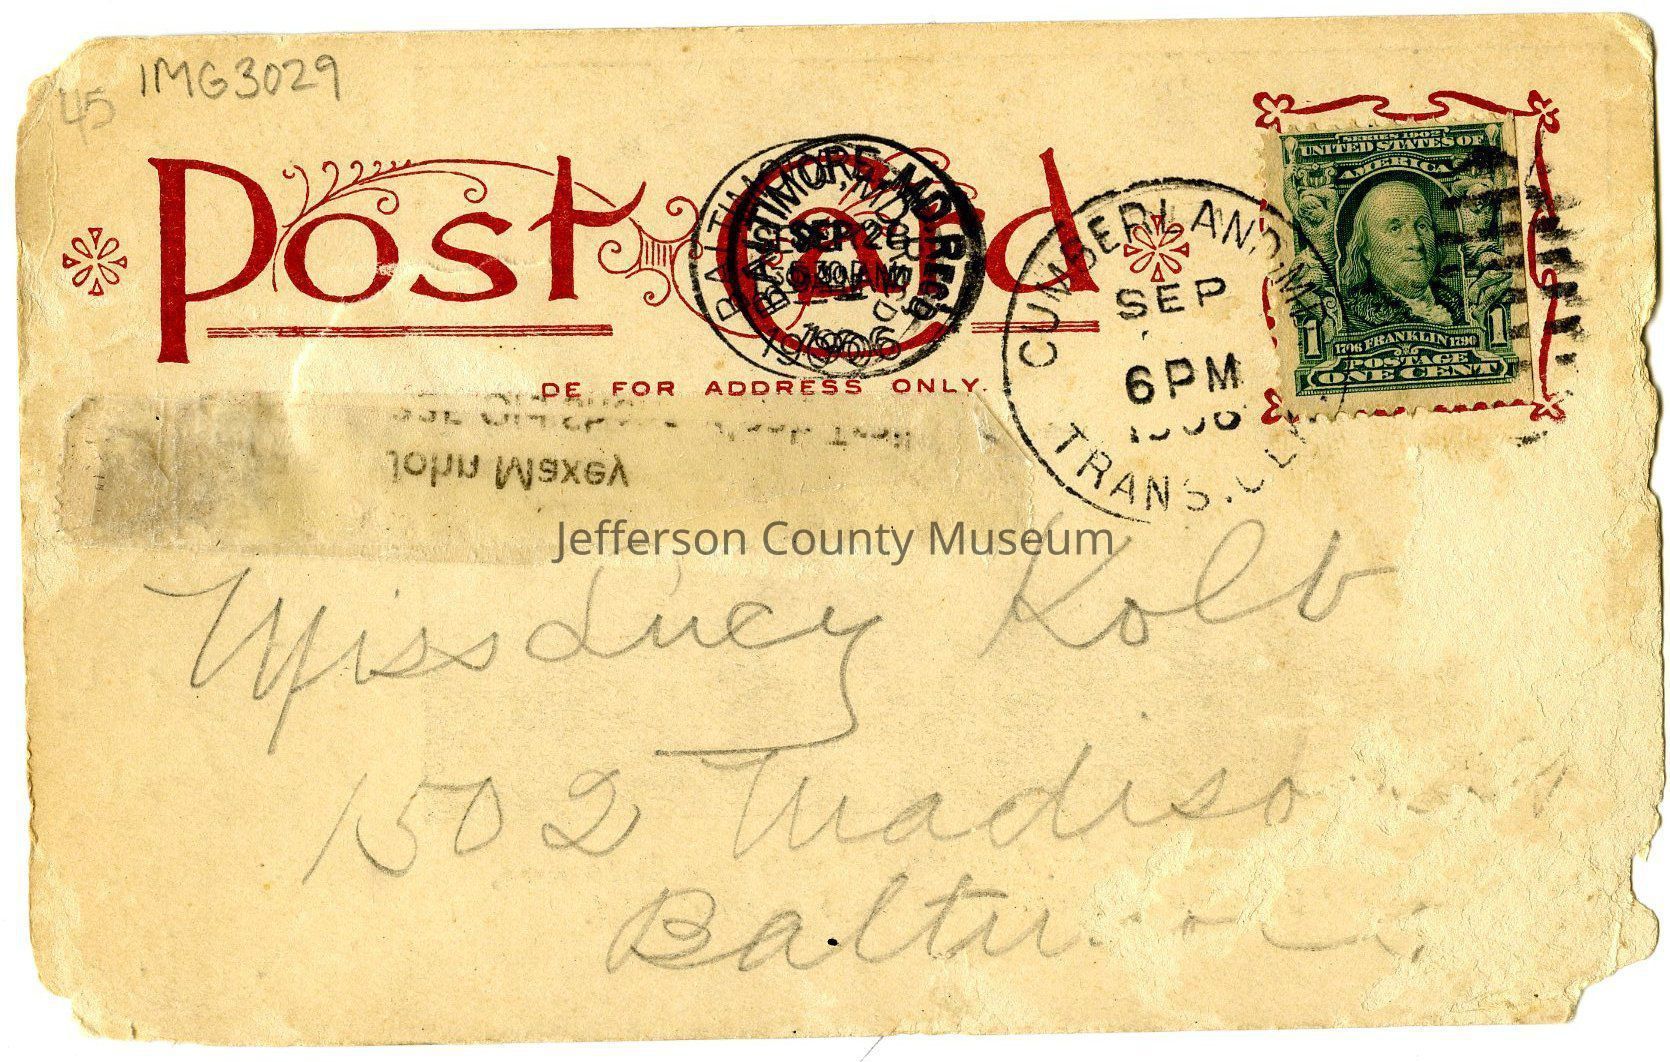 IMG3029
45
Post Card
DE FOR ADDRESS ONLY.
BALTIMORE, MD.
REC'D
SEP 28
1906
CUMBERLAND, MD.
SEP
6 PM
1906
TRANS. CLK.
SERIES 1902
UNITED STATES OF
AMERICA
1 1
1706 FRANKLIN 1790
POSTAGE
ONE CENT
John Maxey
Jefferson County Museum
Miss Lucy Kolb
1502 Madiso
Baltimore